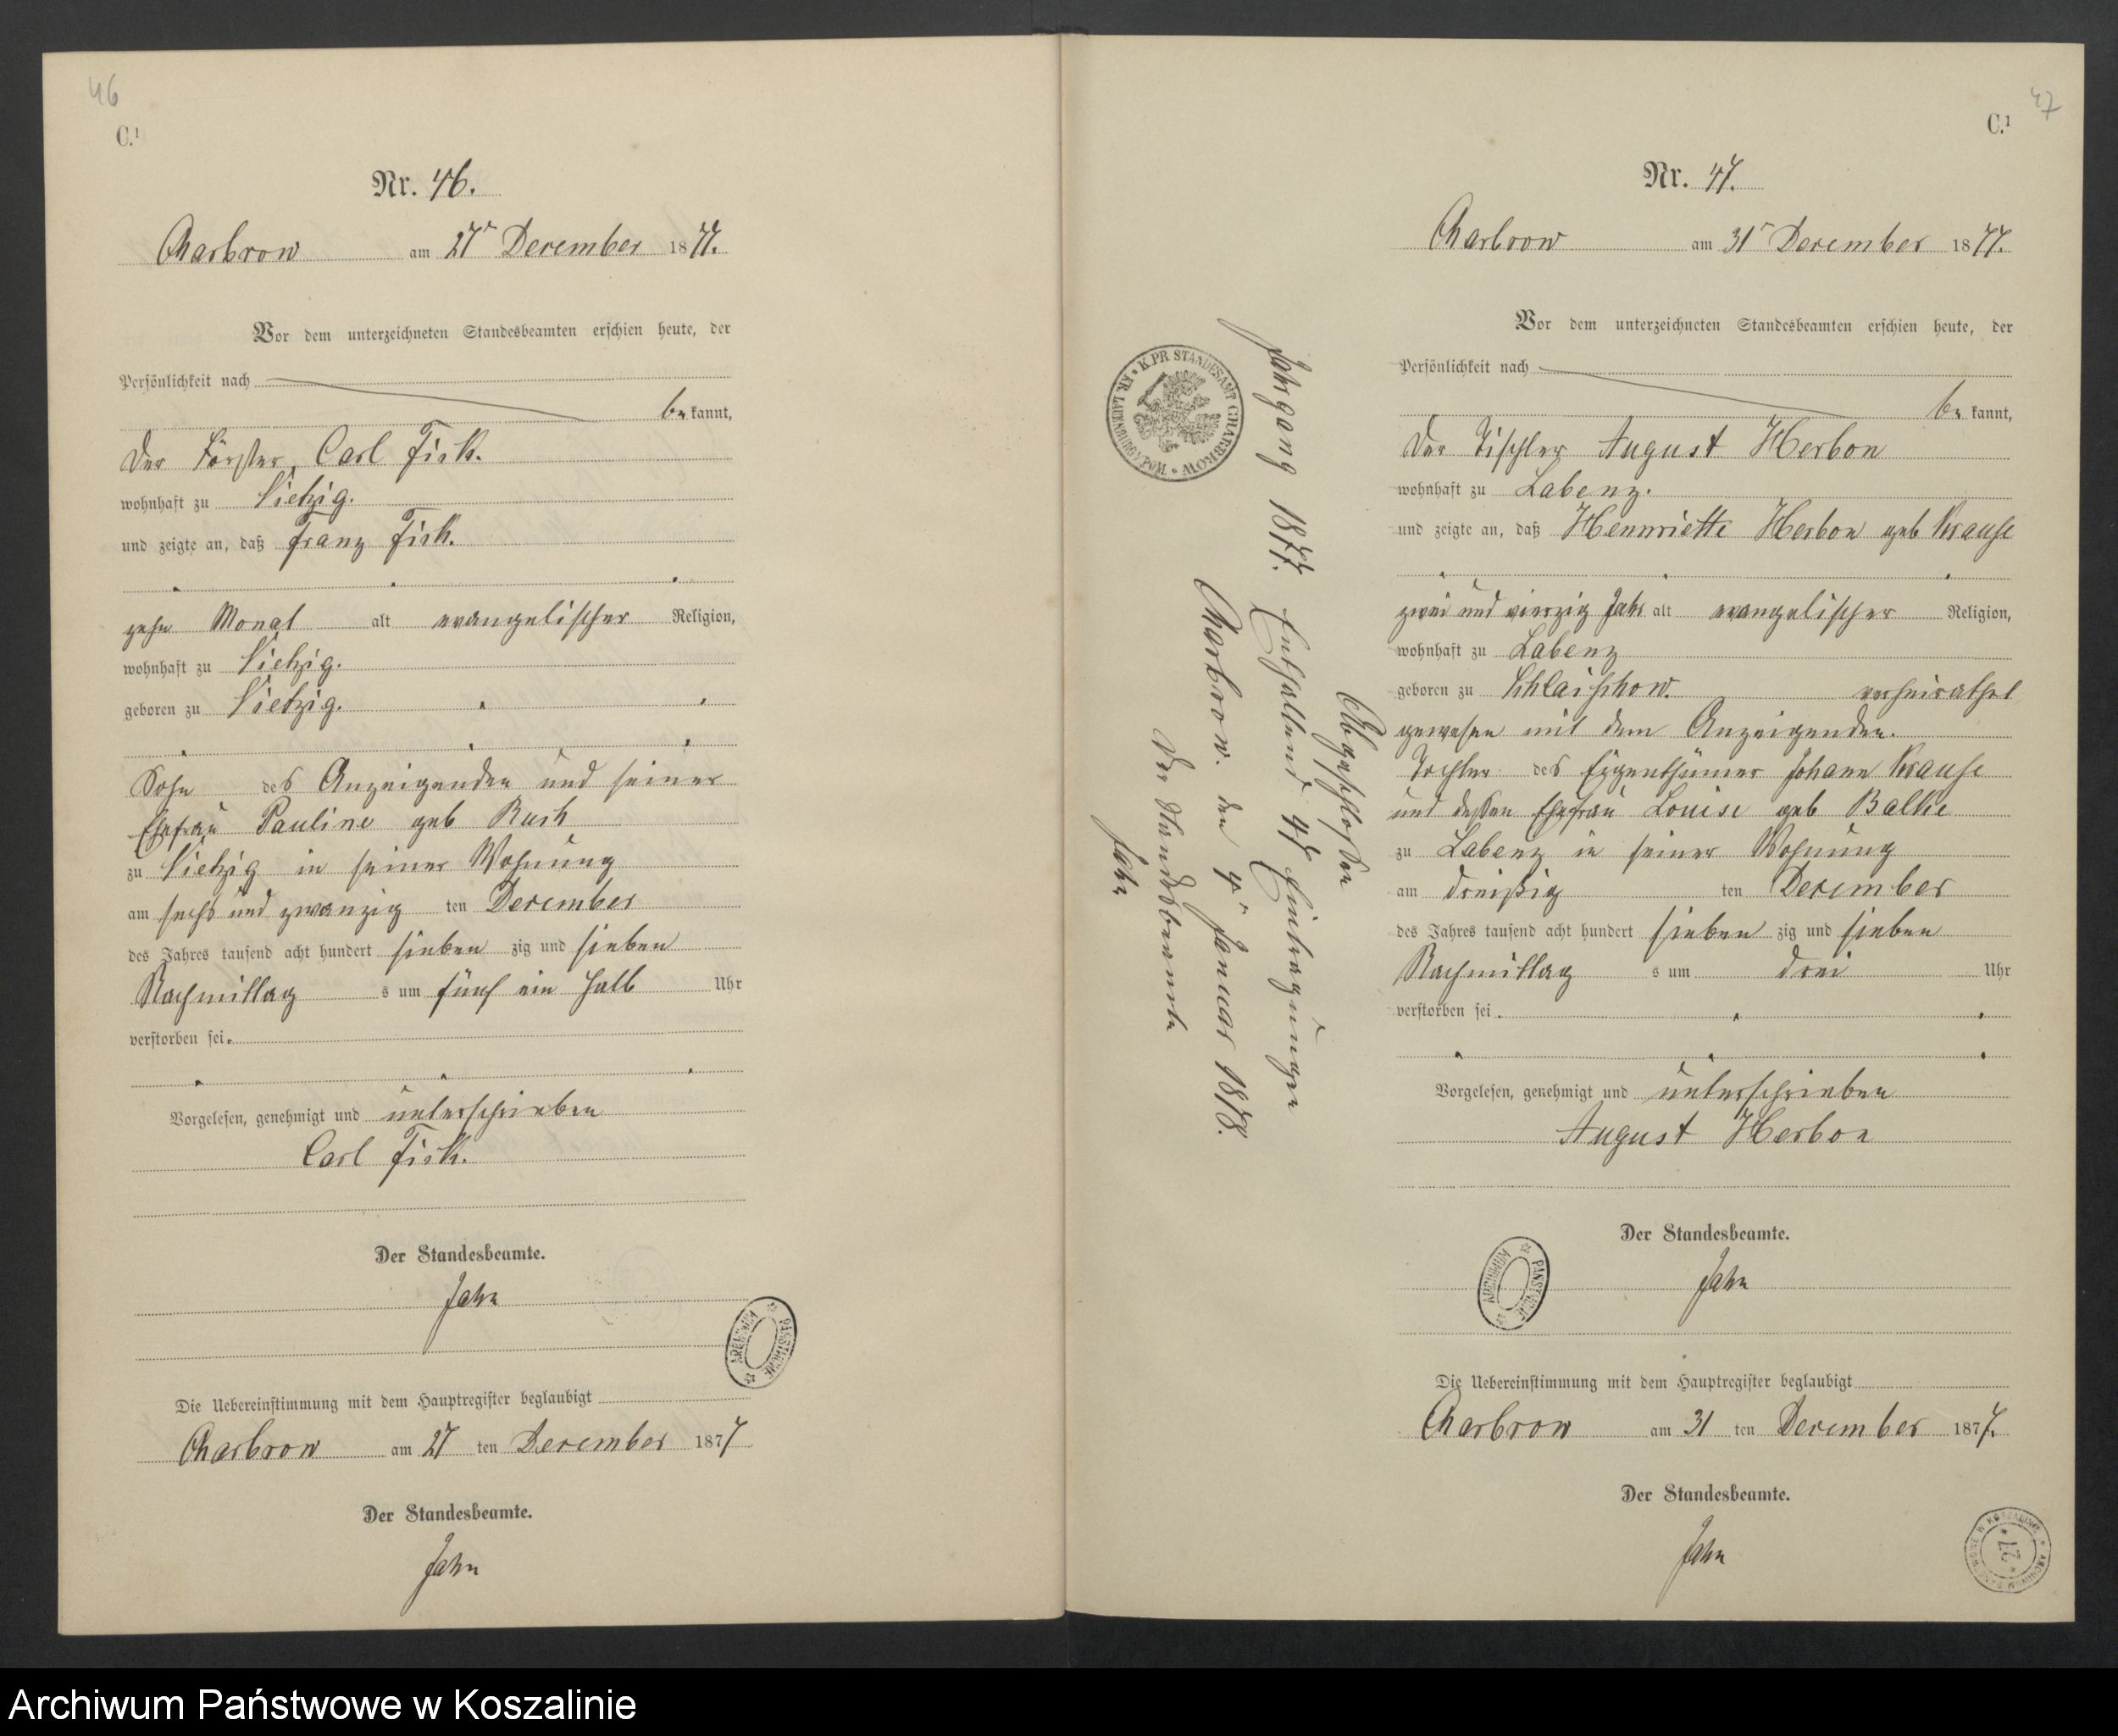 46
C.¹
Nr. 46.
Charbrow am 27ᵗ December 1877.
Vor dem unterzeichneten Standesbeamten erschien heute, der
Persönlichkeit nach
be kannt,
der Förster, Carl Fick.
wohnhaft zu Vietzig.
und zeigte an, daß Franz Fick.
zehn Monat alt evangelischer Religion,
wohnhaft zu Vietzig.
geboren zu Vietzig.
Sohn des Anzeigenden und seiner
Ehefrau Pauline geb Rusch
zu Vietzig in seiner Wohnung
am sechs und zwanzig ten December
des Jahres tausend acht hundert sieben zig und sieben
Nachmittag s um fünf ein halb Uhr
verstorben sei.
Vorgelesen, genehmigt und unterschrieben
Carl Fick.
Der Standesbeamte.
Jahn
Die Uebereinstimmung mit dem Hauptregister beglaubigt
Charbrow am 27 ten December 1877
Der Standesbeamte.
Jahn
47
C.¹
Nr. 47.
Charbrow am 31ᵗ December 1877.
Vor dem unterzeichneten Standesbeamten erschien heute, der
Persönlichkeit nach
be kannt,
der Tischler August Herbon
wohnhaft zu Labenz.
und zeigte an, daß Hennriette Herbon geb Krause
zwei und vierzig Jahr alt evangelischer Religion,
wohnhaft zu Labenz
geboren zu Schlaischow. verheirathet
gewesen mit dem Anzeigenden.
Tochter des Eigenthümer Johann Krause
und dessen Ehefrau Louise geb Balke
zu Labenz in seiner Wohnung
am dreißig ten December
des Jahres tausend acht hundert sieben zig und sieben
Nachmittag s um drei Uhr
verstorben sei.
Vorgelesen, genehmigt und unterschrieben
August Herbon
Der Standesbeamte.
Jahn
Die Uebereinstimmung mit dem Hauptregister beglaubigt
Charbrow am 31 ten December 1877.
Der Standesbeamte.
Jahn
Abgeschlossen
Jahrgang 1877. Enthaltend 47 Eintragungen
Charbrow. den 4ᵗ Januar 1878.
Der Standesbeamte
Jahn
K. PR. STANDESAMT CHARBROW
ARCHIWUM PAŃSTWOWE
ARCHIWUM PAŃSTWOWE
ARCHIWUM PAŃSTWOWE W KOSZALINIE
27
Archiwum Państwowe w Koszalinie